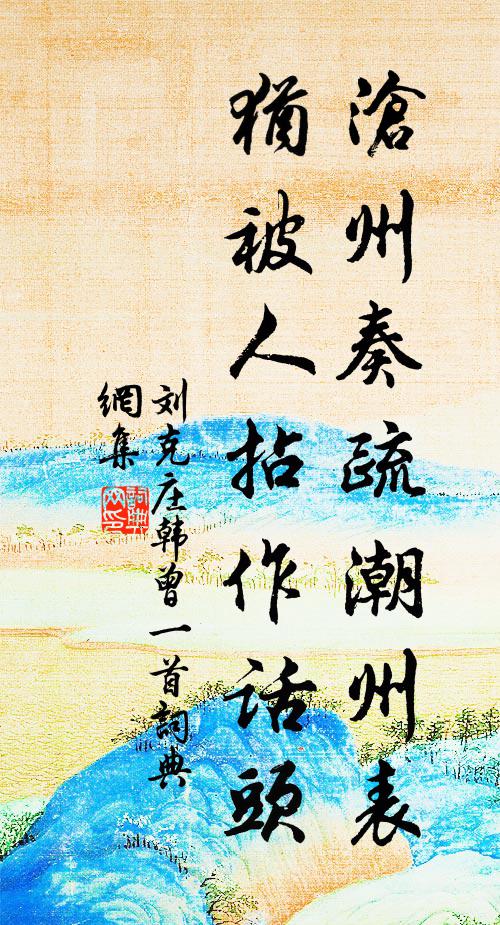 滄州奏疏潮州表
猶被人拈作话頭
刘克庄韩曾一首詞典
網集
詞典
网印